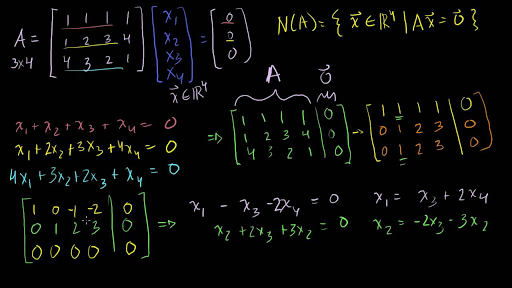 A = [1 1 1 1; 1 2 3 4; 4 3 2 1] [x₁; x₂; x₃; x₄] = [0; 0; 0]
3x4
x⃗ ∈ ℝ⁴
N(A) = { x⃗ ∈ ℝ⁴ | Ax⃗ = 0⃗ }
x₁ + x₂ + x₃ + x₄ = 0
x₁ + 2x₂ + 3x₃ + 4x₄ = 0
4x₁ + 3x₂ + 2x₃ + x₄ = 0
A 0⃗
⇒ [1 1 1 1 | 0; 1 2 3 4 | 0; 4 3 2 1 | 0] → [1 1 1 1 | 0; 0 1 2 3 | 0; 0 1 2 3 | 0]
[1 0 -1 -2 | 0; 0 1 2 3 | 0; 0 0 0 0 | 0] ⇒
x₁ - x₃ - 2x₄ = 0
x₂ + 2x₃ + 3x₂ = 0
x₁ = x₃ + 2x₄
x₂ = -2x₃ - 3x₂